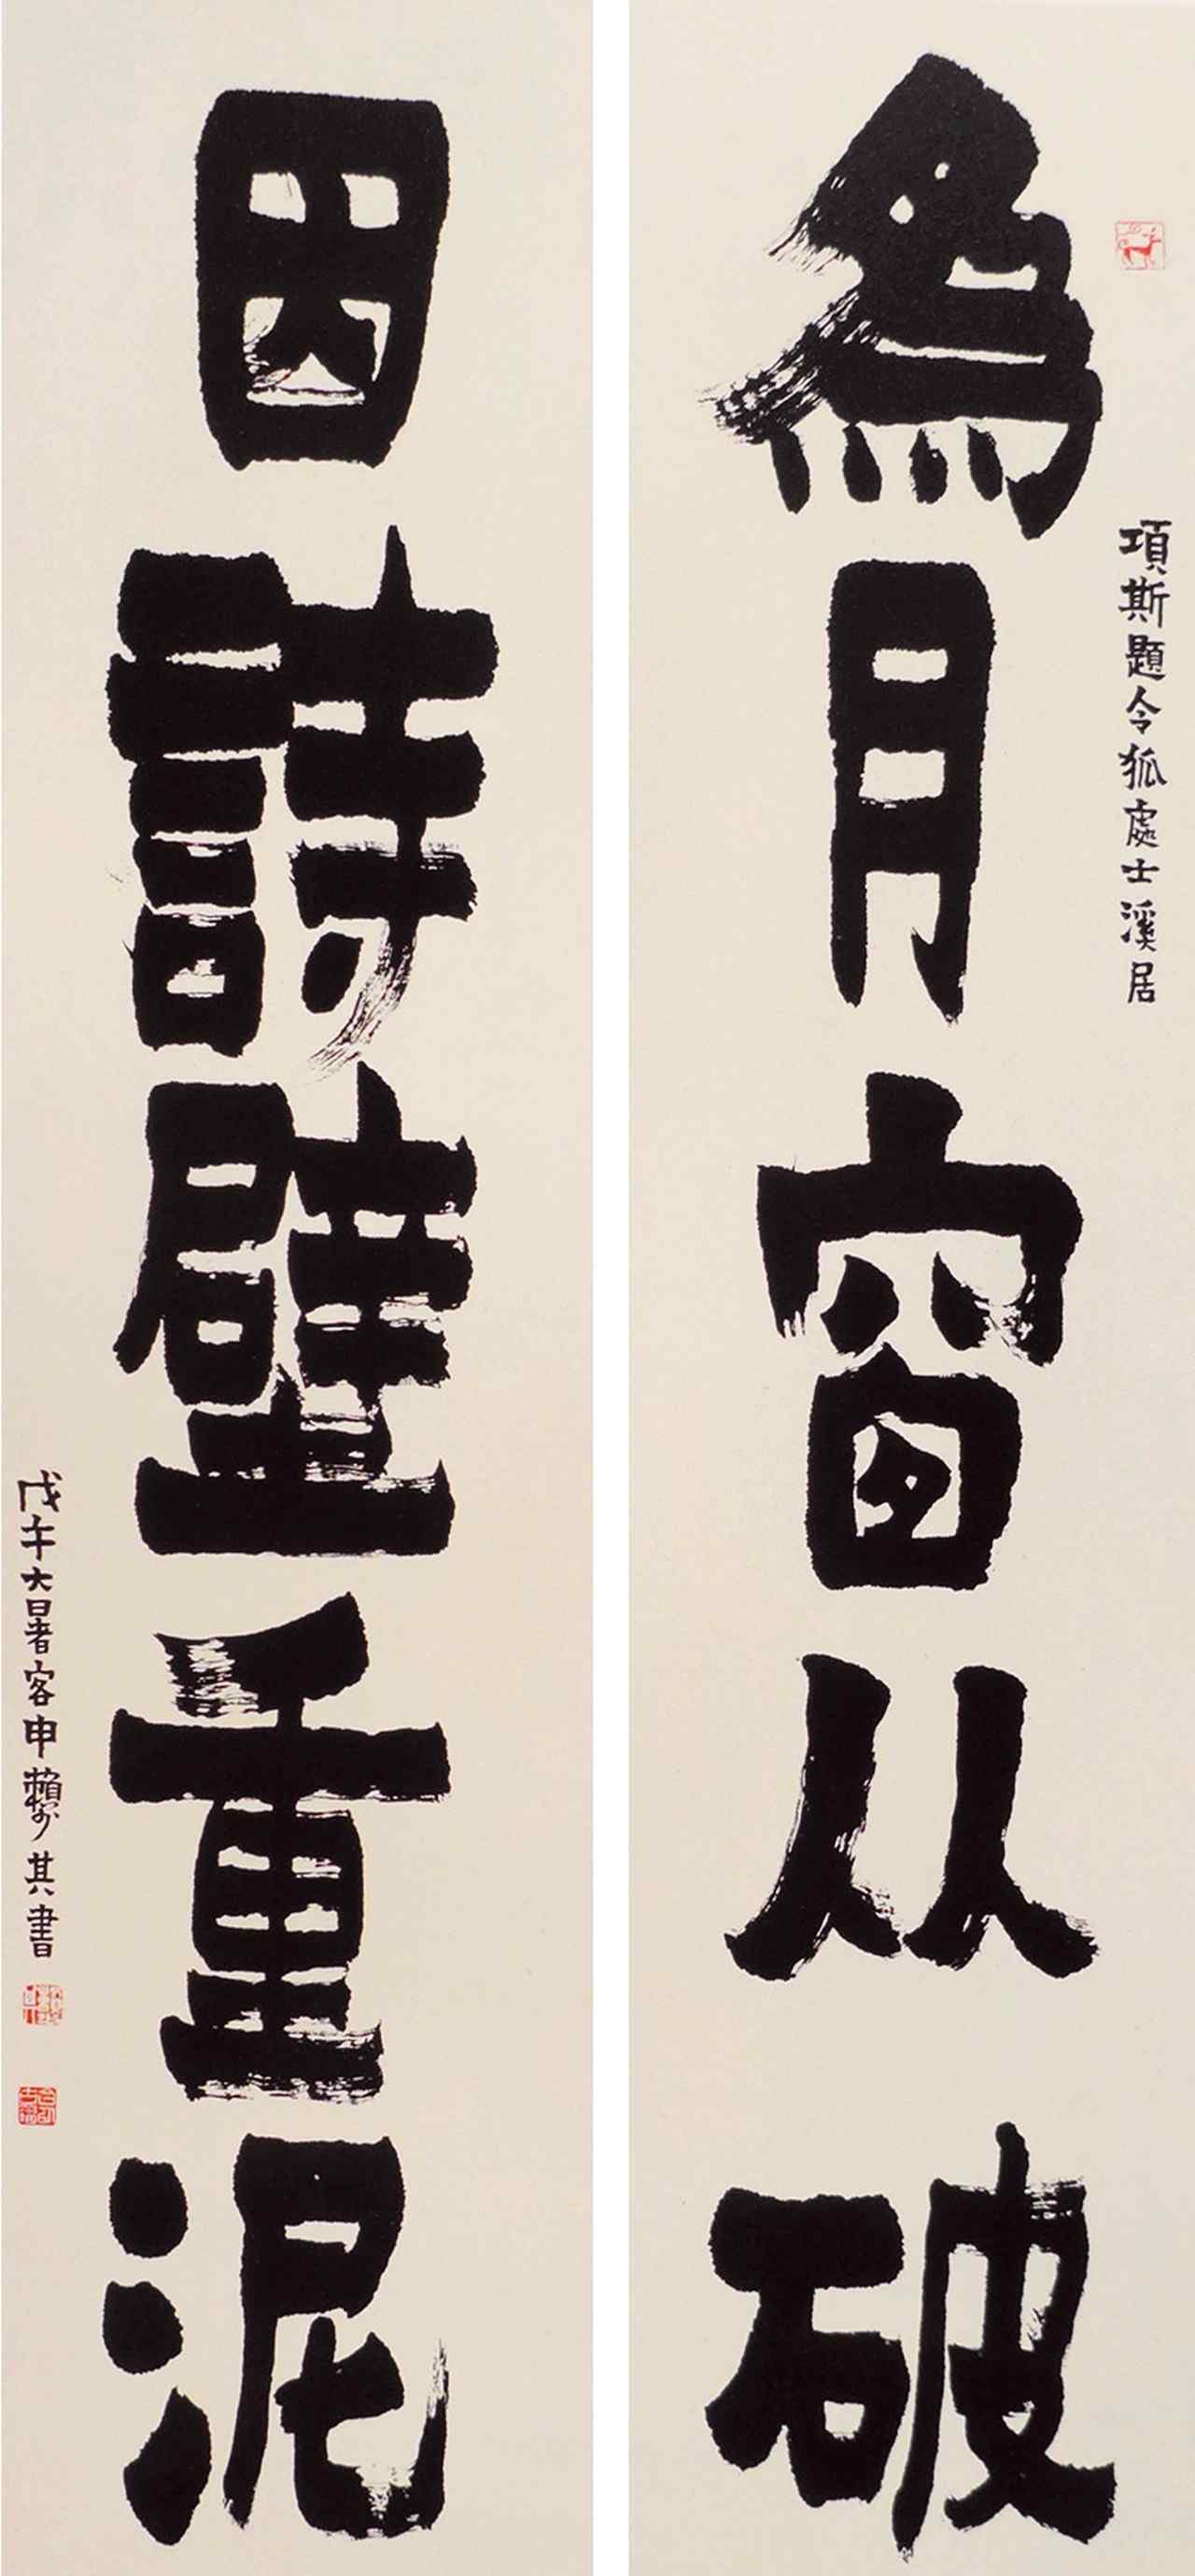 項斯題令狐處士溪居
為月窗从破
因詩壁重泥
戊午大暑客申賴少其書